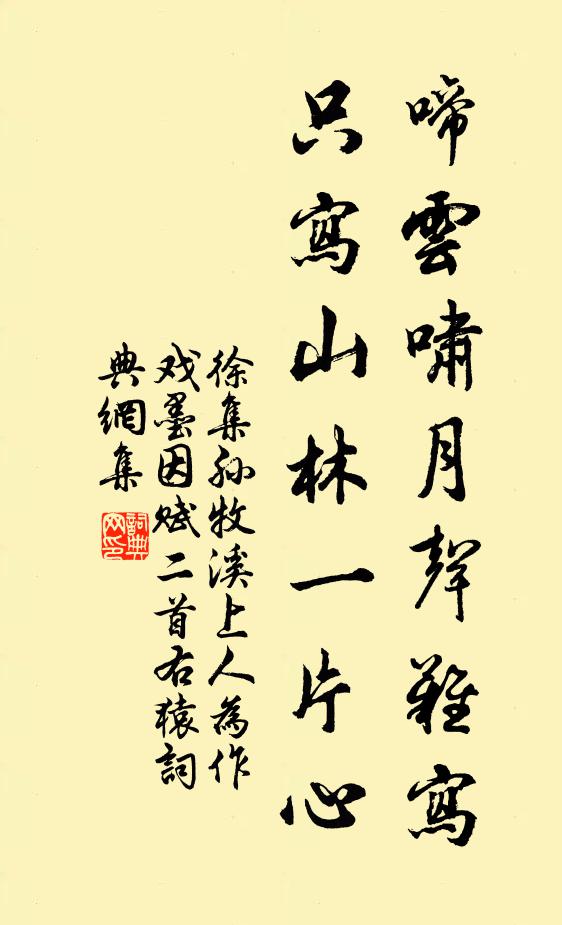 啼雲嘯月聲難寫
只寫山林一片心
徐集孙牧溪上人為作
戏墨因赋二首右猿詞
典網集
詞典
网印